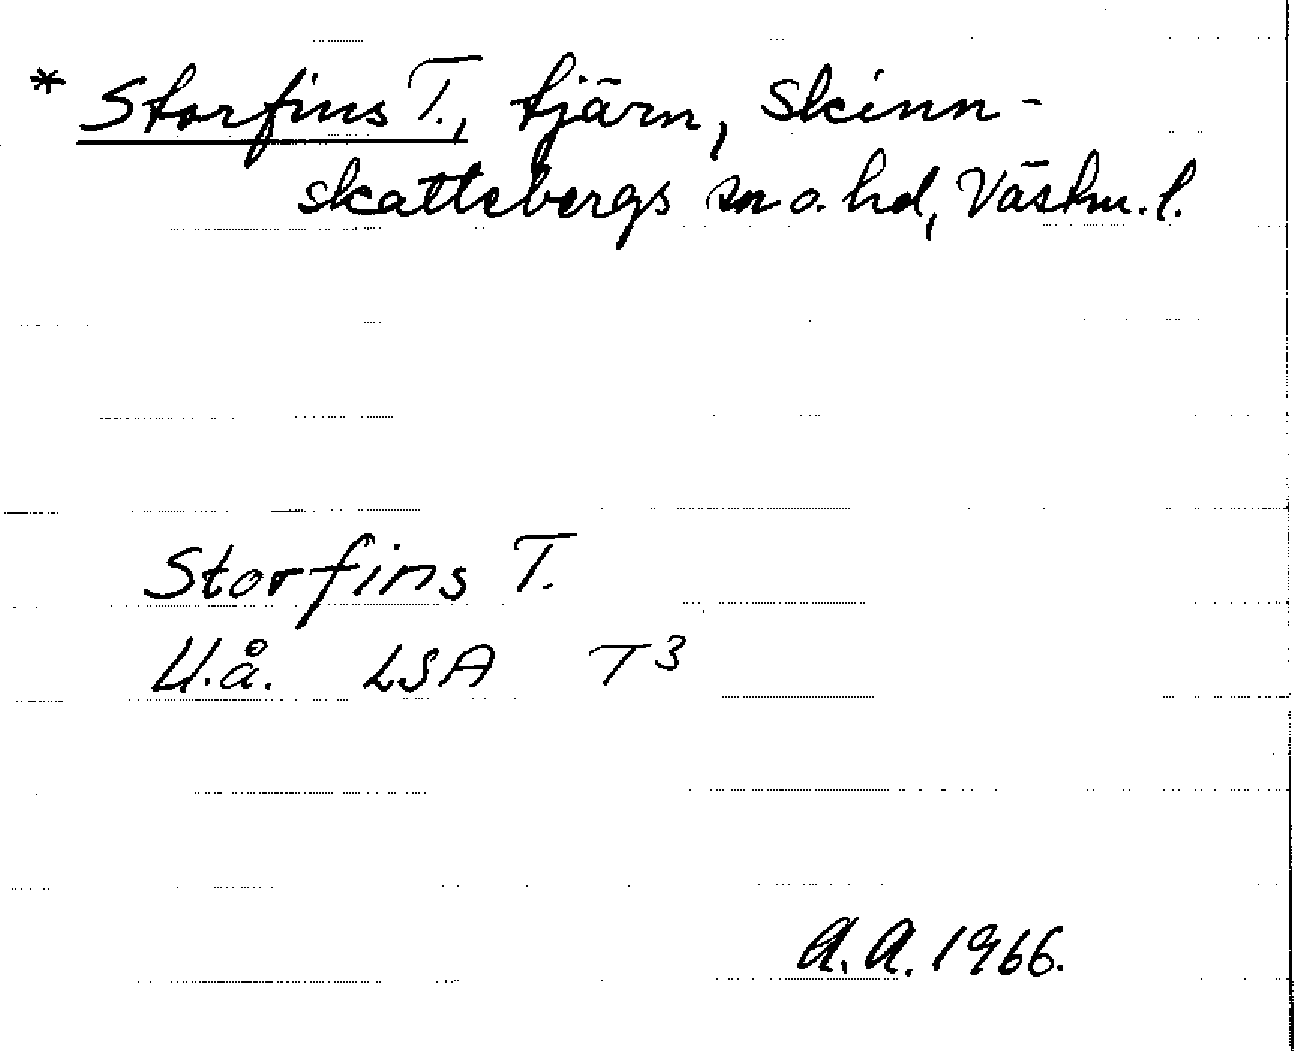 * Storfins T., tjärn, Skinn-
skattebergs sn o. hd, Västm. l.
Storfins T.
U.å. LSA T³
A.A. 1966.